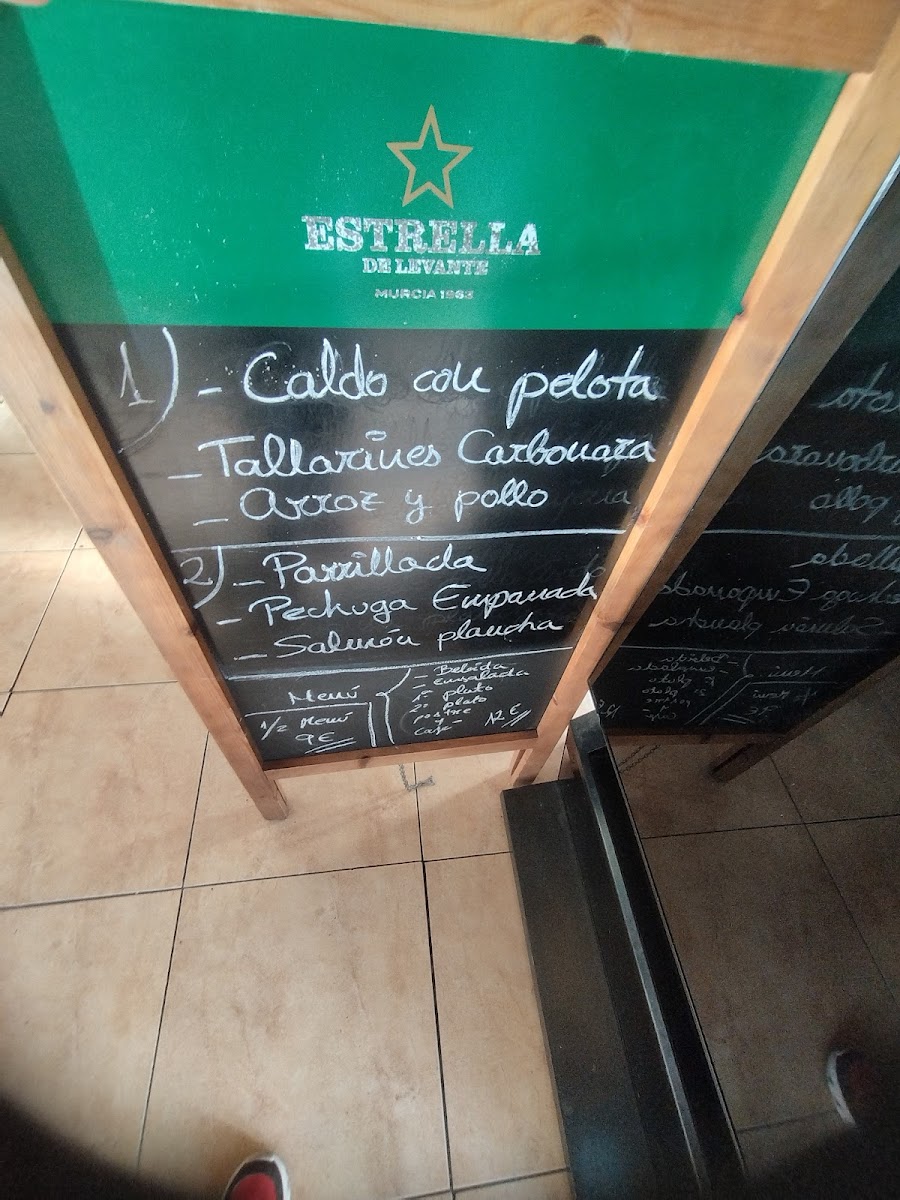 ESTRELLA
DE LEVANTE
MURCIA 1963
1) - Caldo con pelota
- Tallarines Carbonara
- Arroz y pollo
2) - Parrillada
- Pechuga Empanada
- Salmón plancha
Menú
1/2 Menú
9€
- Bebida
- ensalada
1º plato
2º plato
postre
y -
Café 12€